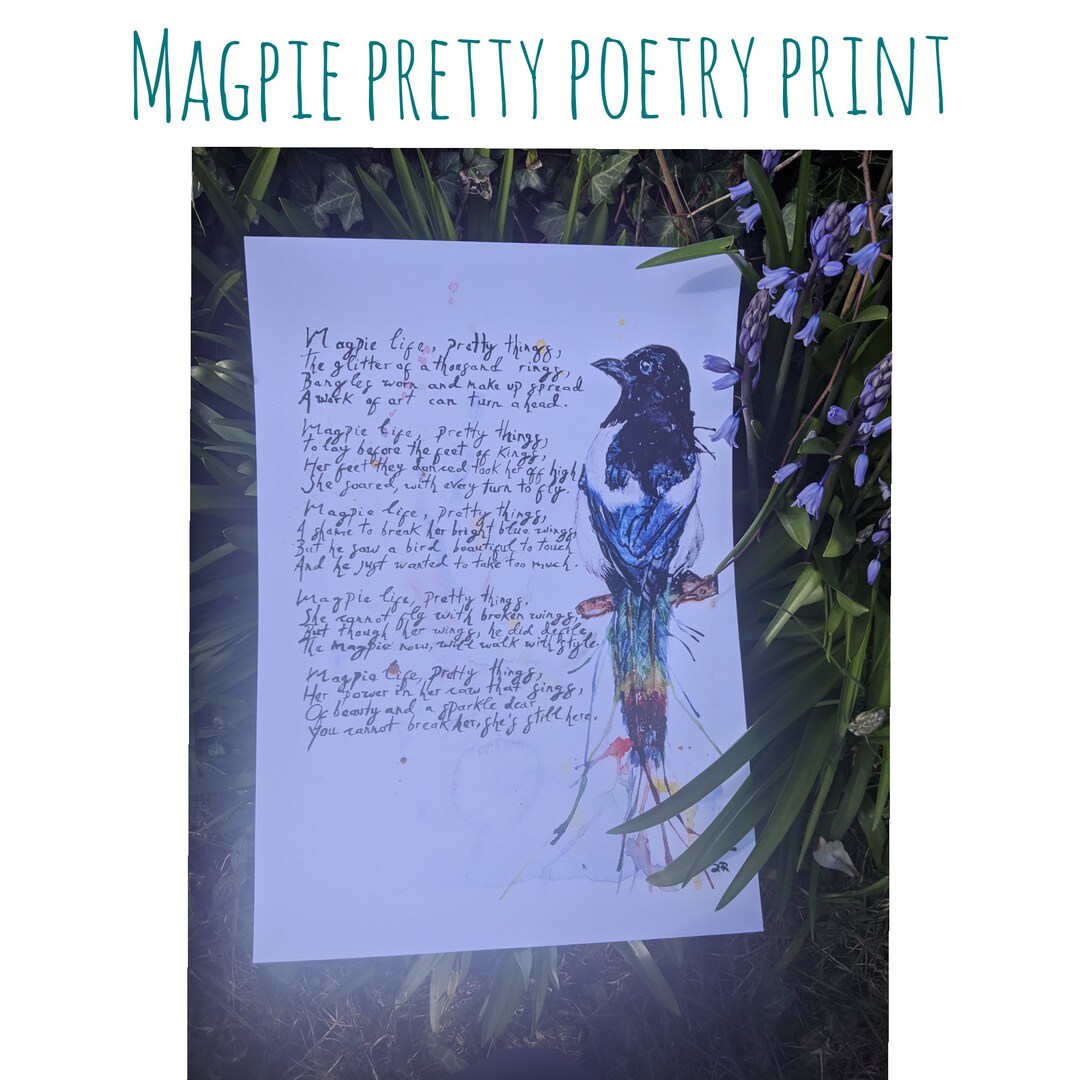 MAGPIE PRETTY POETRY PRINT
Magpie life, pretty things,
The glitter of a thousand rings,
Bangles worn and make up spread
A work of art can turn a head.
Magpie life, pretty things,
To lay before the feet of kings,
Her feet they danced took her off high
She soared, with every turn to fly.
Magpie life, pretty things,
A shame to break her bright blue wings,
But he saw a bird, beautiful to touch
And he just wanted to take too much.
Magpie life, pretty things,
She cannot fly with broken wings,
But though her wings, he did defile,
The magpie now, will walk with style.
Magpie life, pretty things,
Her power in her caw that sings,
Of beauty and a sparkle dear
You cannot break her, she's still here.